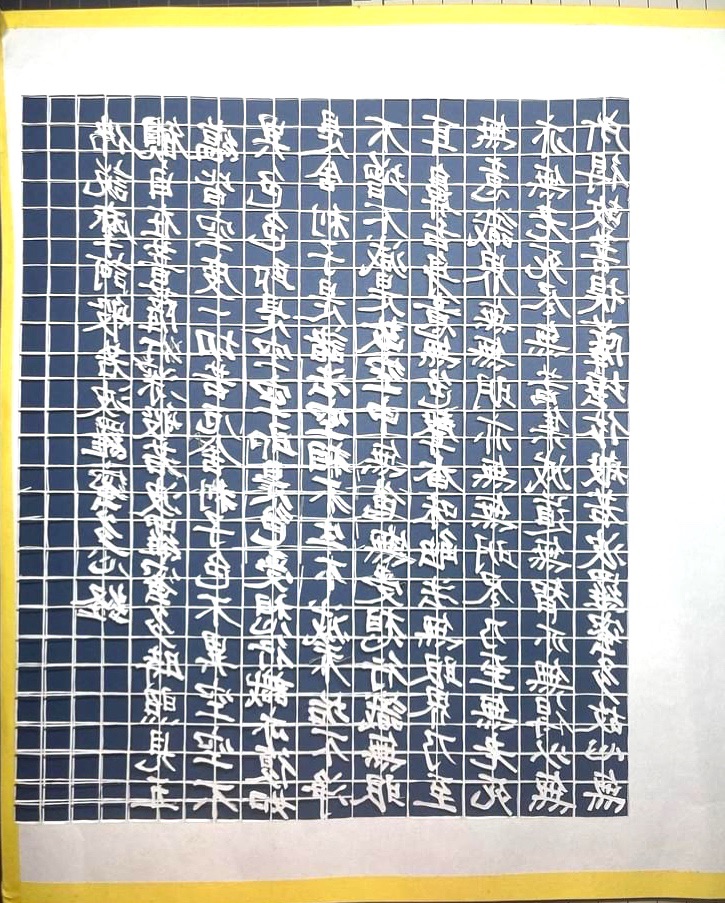 佛説摩訶般若波羅蜜多心経
觀自在菩薩行深般若波羅蜜多時照見五
蘊皆空度一切苦厄舎利子色不異空空不
異色色即是空空即是色受想行識亦復如
是舎利子是諸法空相不生不滅不垢不浄
不増不減是故空中無色無受想行識無眼
耳鼻舌身意無色聲香味觸法無眼界乃至
無意識界無無明亦無無明尽乃至無老死
亦無老死尽無苦集滅道無智亦無得以無
所得故菩提薩埵依般若波羅蜜多故心無